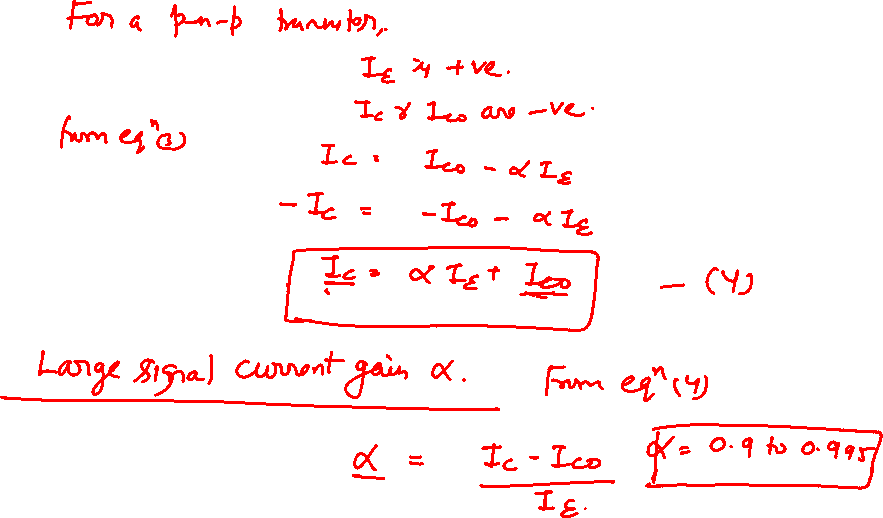 For a p-n-p transistor,
I_E is +ve.
I_C & I_CO are -ve.
from eq^n (3)
I_C = I_CO - α I_E
- I_C = - I_CO - α I_E
I_C = α I_E + I_CO — (4)
Large signal current gain α.
From eq^n (4)
α = (I_C - I_CO) / I_E.
α = 0.9 to 0.995